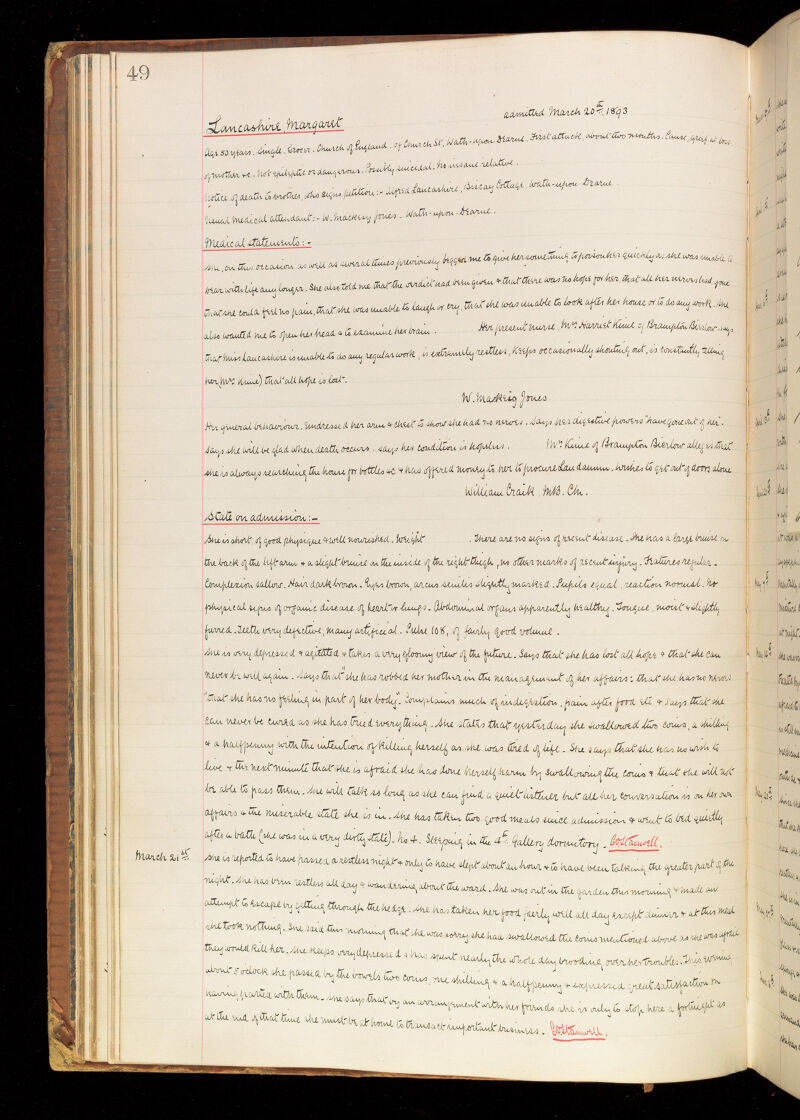 49
admitted March 20th 1893
Lancashire, Margaret
Age 53 years. Single. Grocer. Church of England. of Church St, Wath-upon-Dearne. First attack, about two months. Cause, grief at loss
of mother &c. Not epileptic or dangerous. Possibly suicidal. No insane relative.
Notice of death to brother, who signs petition:- Alfred Lancashire, Biscay Cottage, Wath-upon-Dearne.
Usual medical attendant:- W. Mackeig Jones. Wath-upon-Dearne.
Medical statements:-
She, on this occasion as well as several times previously begged me to give her something to poison her quickly as she was unable to
bear with life any longer. She also told me that the verdict had been given & that there was no hope for her, that all her nerves had gone
that she could feel no pain, that she was unable to laugh or cry, that she was unable to look after her house or to do any work. She
also wanted me to open her head & to examine her brain. Her present nurse, Mrs Harriet Kime of Brampton Bierlow says
that Miss Lancashire is unable to do any regular work, is extremely restless, keeps occasionally shouting out, is constantly telling
her (Mrs Kime) that all hope is lost.
W. Mackeig Jones
Her general behaviour. Undressed her arm & chest to show she had no nerves. Says her digestive powers "have gone out of her".
Says she will be glad when death occurs. Says her condition is hopeless. Mrs Kime of Brampton Bierlow alleges that
she is always searching the house for bottles &c & has offered money to her to procure Laudanum. Wishes to get out of doors alone
William Craik MB. CM.
State on admission:-
She is short, of good physique & well nourished. Weight . There are no signs of recent disease. She has a large bruise on
the back of the left arm & a slight bruise on the inside of the right thigh, no other marks of recent injury. Features regular.
Complexion sallow. Hair dark brown. Eyes brown, arcus senilis slightly marked. Pupils equal, reaction normal. No
physical signs of organic disease of heart or lungs. Abdominal organs apparently healthy. Tongue, moist & slightly
furred. Teeth very defective, many artificial. Pulse 108, of fairly good volume.
She is very depressed & agitated & takes a very gloomy view of the future. Says that she has lost all hope & that she can
never be well again. Says that "she has robbed her mother in the management of her affairs: that she has no nerves
"that she has no feeling in part of her body". Complains much of indigestion, pain after food etc & says that she
can never be cured as she has tried everything. She states that yesterday she swallowed two coins, a shilling
& a halfpenny with the intention of killing herself as she was tired of life. She says that she has no wish to
live & the next minute that she is afraid she has done herself harm by swallowing the coins & that she will not
be able to pass them. She will talk as long as she can find a quiet listener but all her conversation is on her own
affairs & the miserable state she is in. She has taken two good meals since admission & went to bed quietly
after a bath (she was in a very dirty state). No 4. Sleeping in the 4th Gallery dormitory.
March 21st.
She is reported to have passed a restless night & only to have slept about an hour & to have been talking the greater part of the
night. She has been restless all day & wandering about the ward. She was out in the garden this morning & made an
attempt to escape by getting through the hedge. She has taken her food fairly well all day except dinner & at this meal
she took nothing. She said this morning that she was sorry she had swallowed the coins mentioned above as she was afraid
they would kill her. She keeps very depressed & has spent nearly the whole day brooding over her troubles. This evening
about 5 oclock she passed by the bowels two coins, one shilling & a halfpenny & expressed great satisfaction on
having parted with them. She says that by an arrangement with her friends she is only to stop here a fortnight as
at the end of that time she must be at home to transact important business.